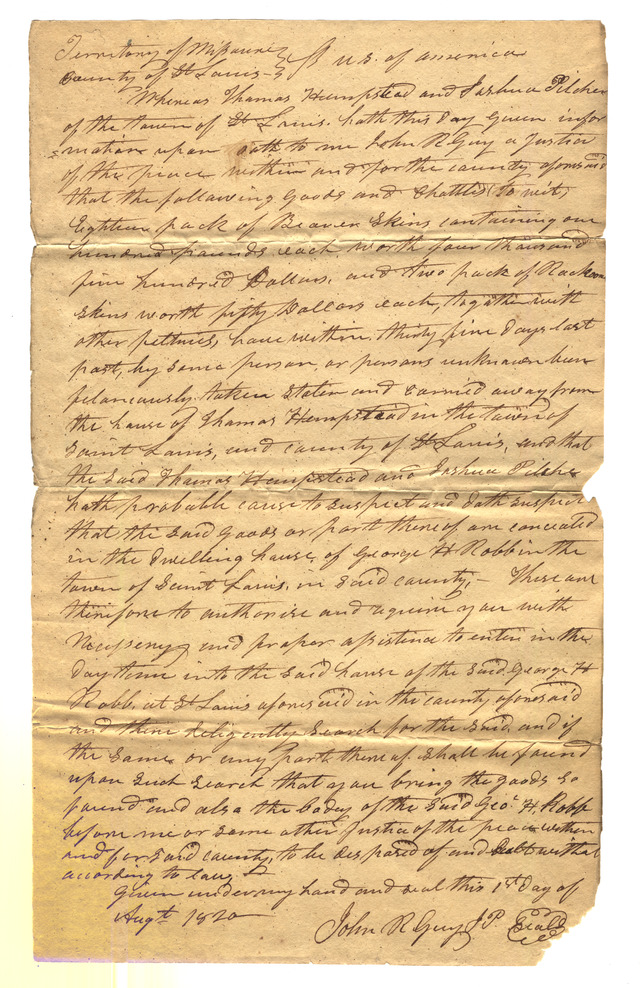 Territory of Missouri } ss U.S. of america
County of St Louis }
Whereas Thomas Hempstead and Joshua Pilcher
of the town of St Louis. hath this day given infor
=mation upon oath to me John R Guy a Justice
of the peace within and for the county aforesaid
that the following goods and chattles (to wit)
Eighteen pack of Beaver Skins containing one
hundred pounds each worth four thousand
five hundred Dollars. and two pack of Rackoon
skins worth fifty Dollars each, together with
other peltries, have within thirty five days last
past, by some person, or persons unknown been
felaniously taken stolen and carried away from
the house of Thomas Hempstead in the town of
Saint Louis, and county of St Louis, and that
the said Thomas Hempstead and Joshua Pilcher
hath probable cause to suspect and doth suspect
that the said goods or part there of are concealed
in the dwelling house, of George H Robb in the
town of Saint Louis, in said county,— These are
therefore to authorise and require you with
necessery and proper assistance to enter in the
day time into the said house of the said George H
Robb. at St Louis aforesaid in the county aforesaid
and there deligently search for the said, and if
the same or any part there of shall be found
upon such search that you bring the goods so
found and also the body of the said Geo. H. Robb
before me or some other Justice of the peace within
and for said county, to be disposed of and dealt withal
according to law,
Given under my hand and seal this 1st day of
Augt 1820
John R Guy J P. Seal